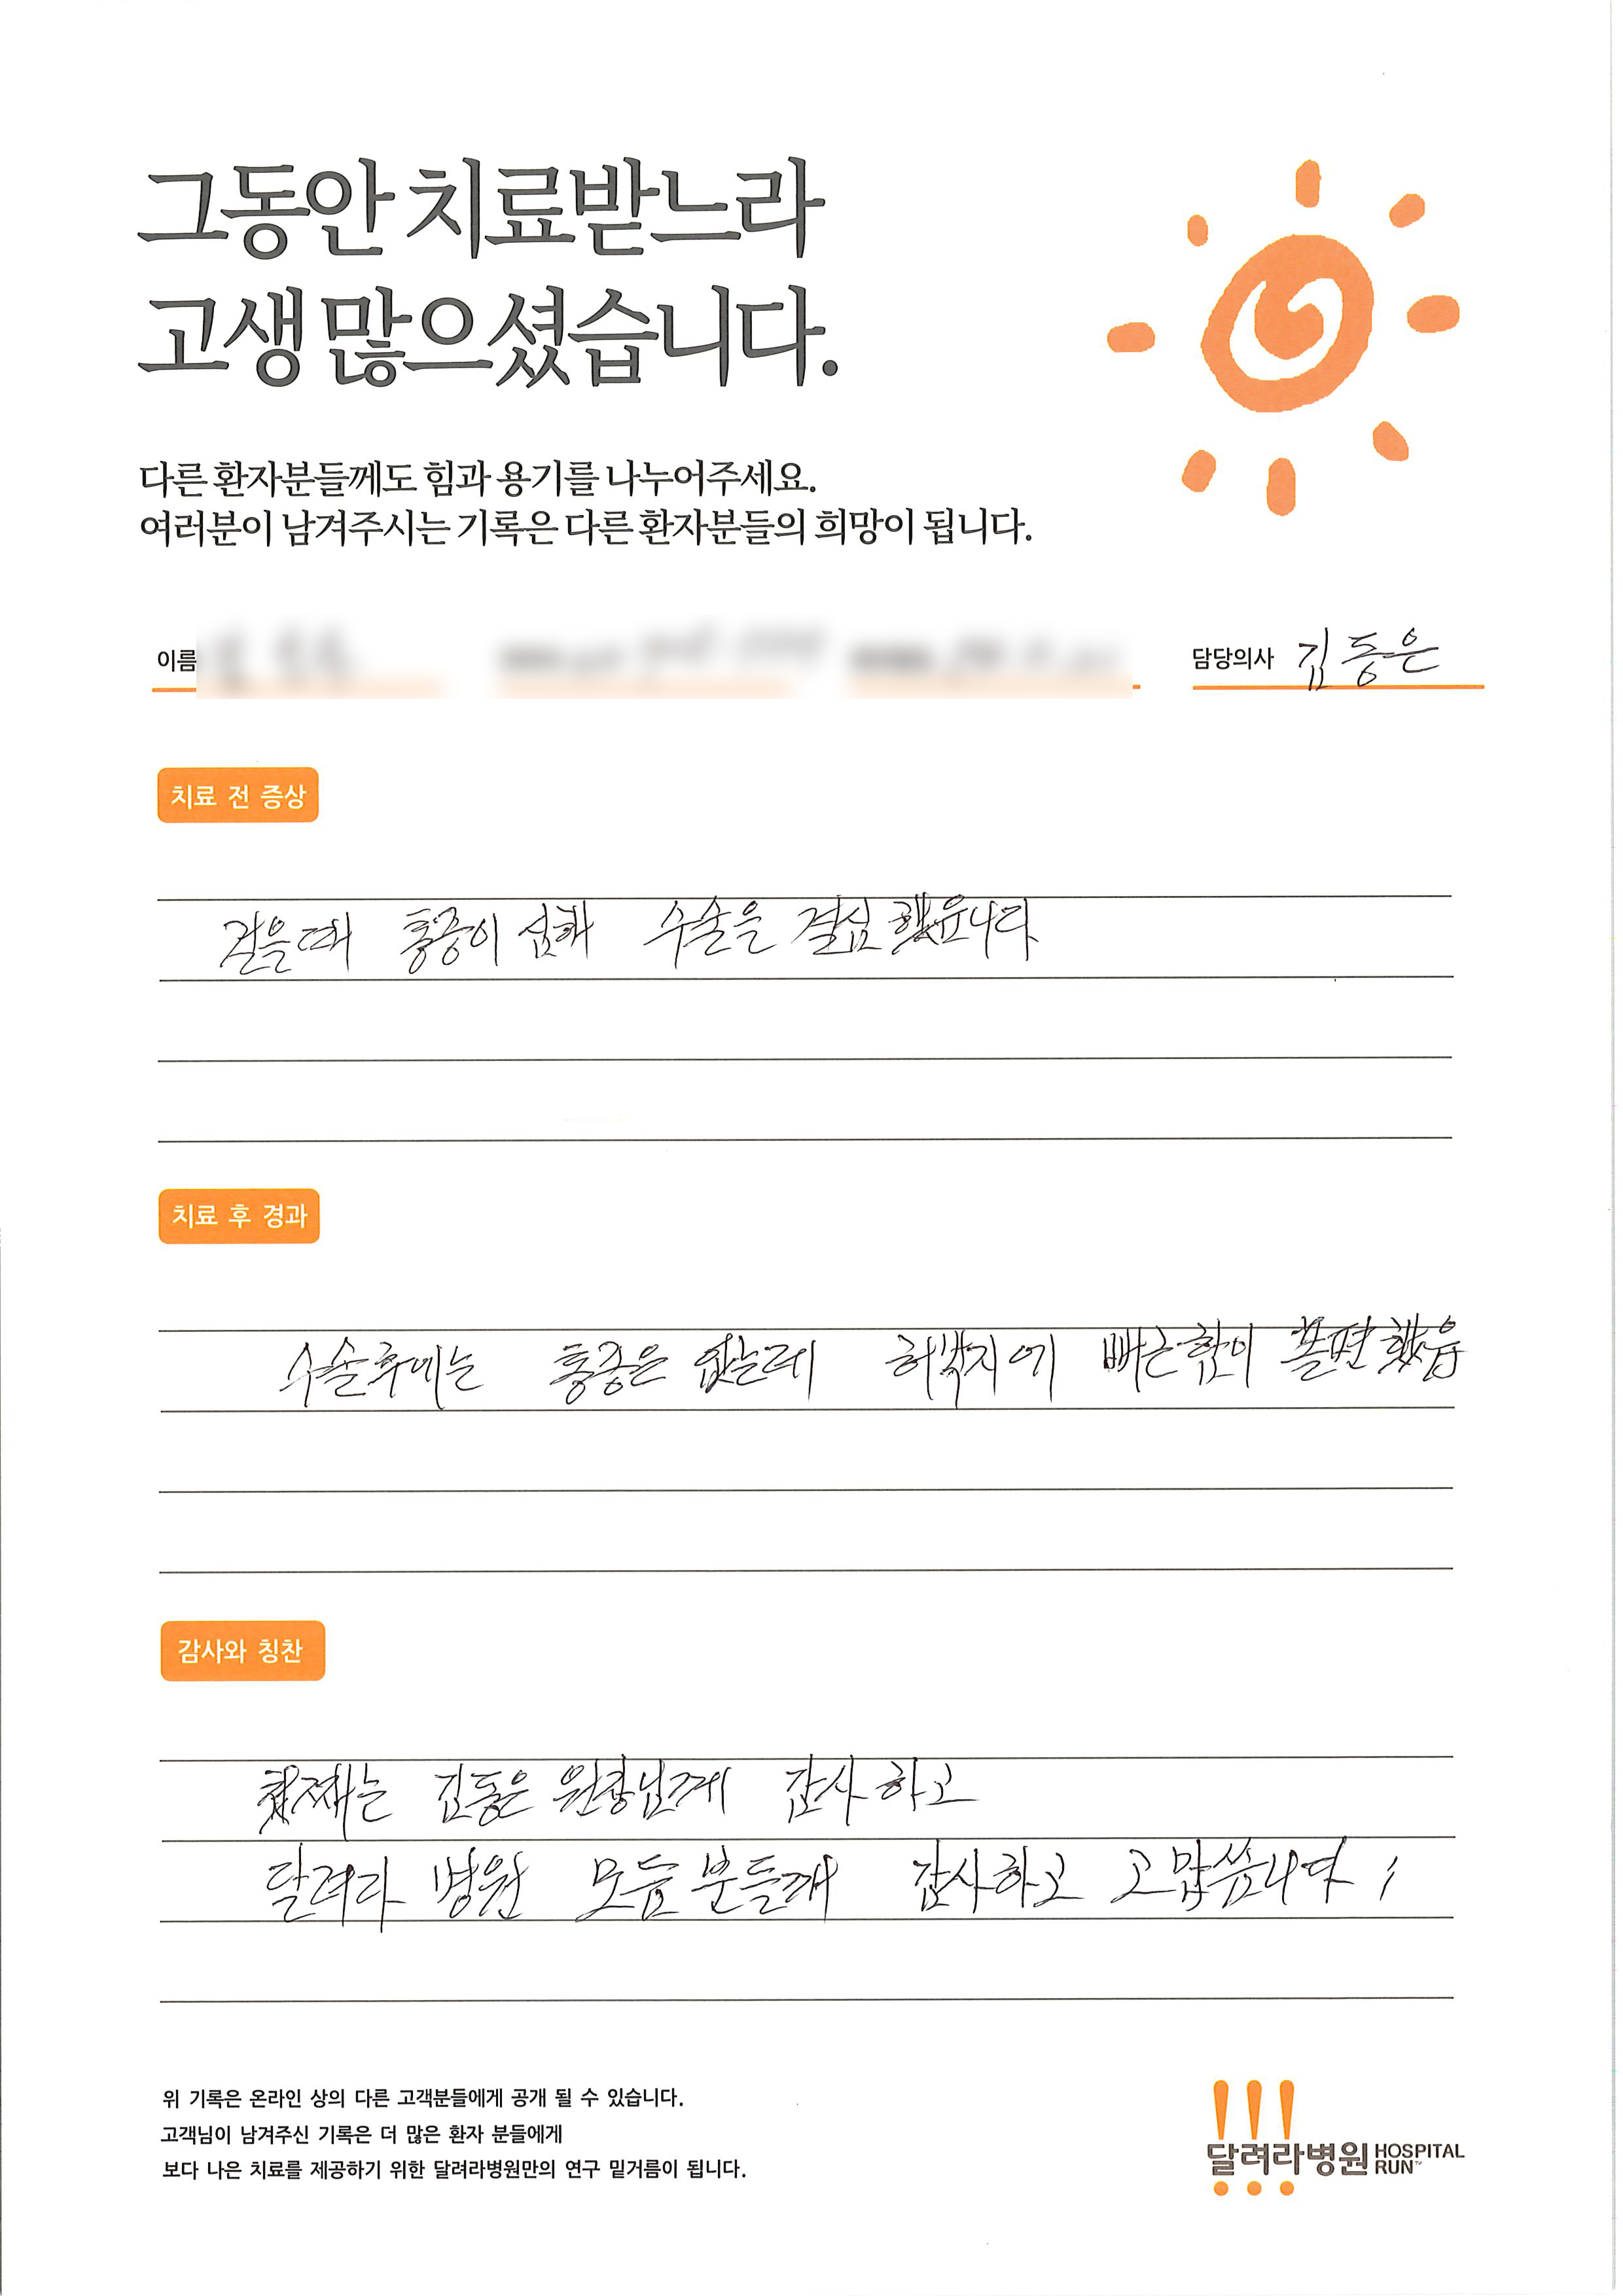 그동안 치료받느라
고생 많으셨습니다.
다른 환자분들께도 힘과 용기를 나누어주세요.
여러분이 남겨주시는 기록은 다른 환자분들의 희망이 됩니다.
이름
담당의사 김동은
치료 전 증상
걸을때 통증이 심해 수술을 결심 했읍니다
치료 후 경과
수술후에는 통증은 없는데 허벅지에 뻐근함이 불편했음
감사와 칭찬
첫째는 김동은 원장님께 감사하고
달려라 병원 모든 분들께 감사하고 고맙씁니다
위 기록은 온라인 상의 다른 고객분들에게 공개 될 수 있습니다.
고객님이 남겨주신 기록은 더 많은 환자 분들에게
보다 나은 치료를 제공하기 위한 달려라병원만의 연구 밑거름이 됩니다.
달려라병원 HOSPITAL RUN